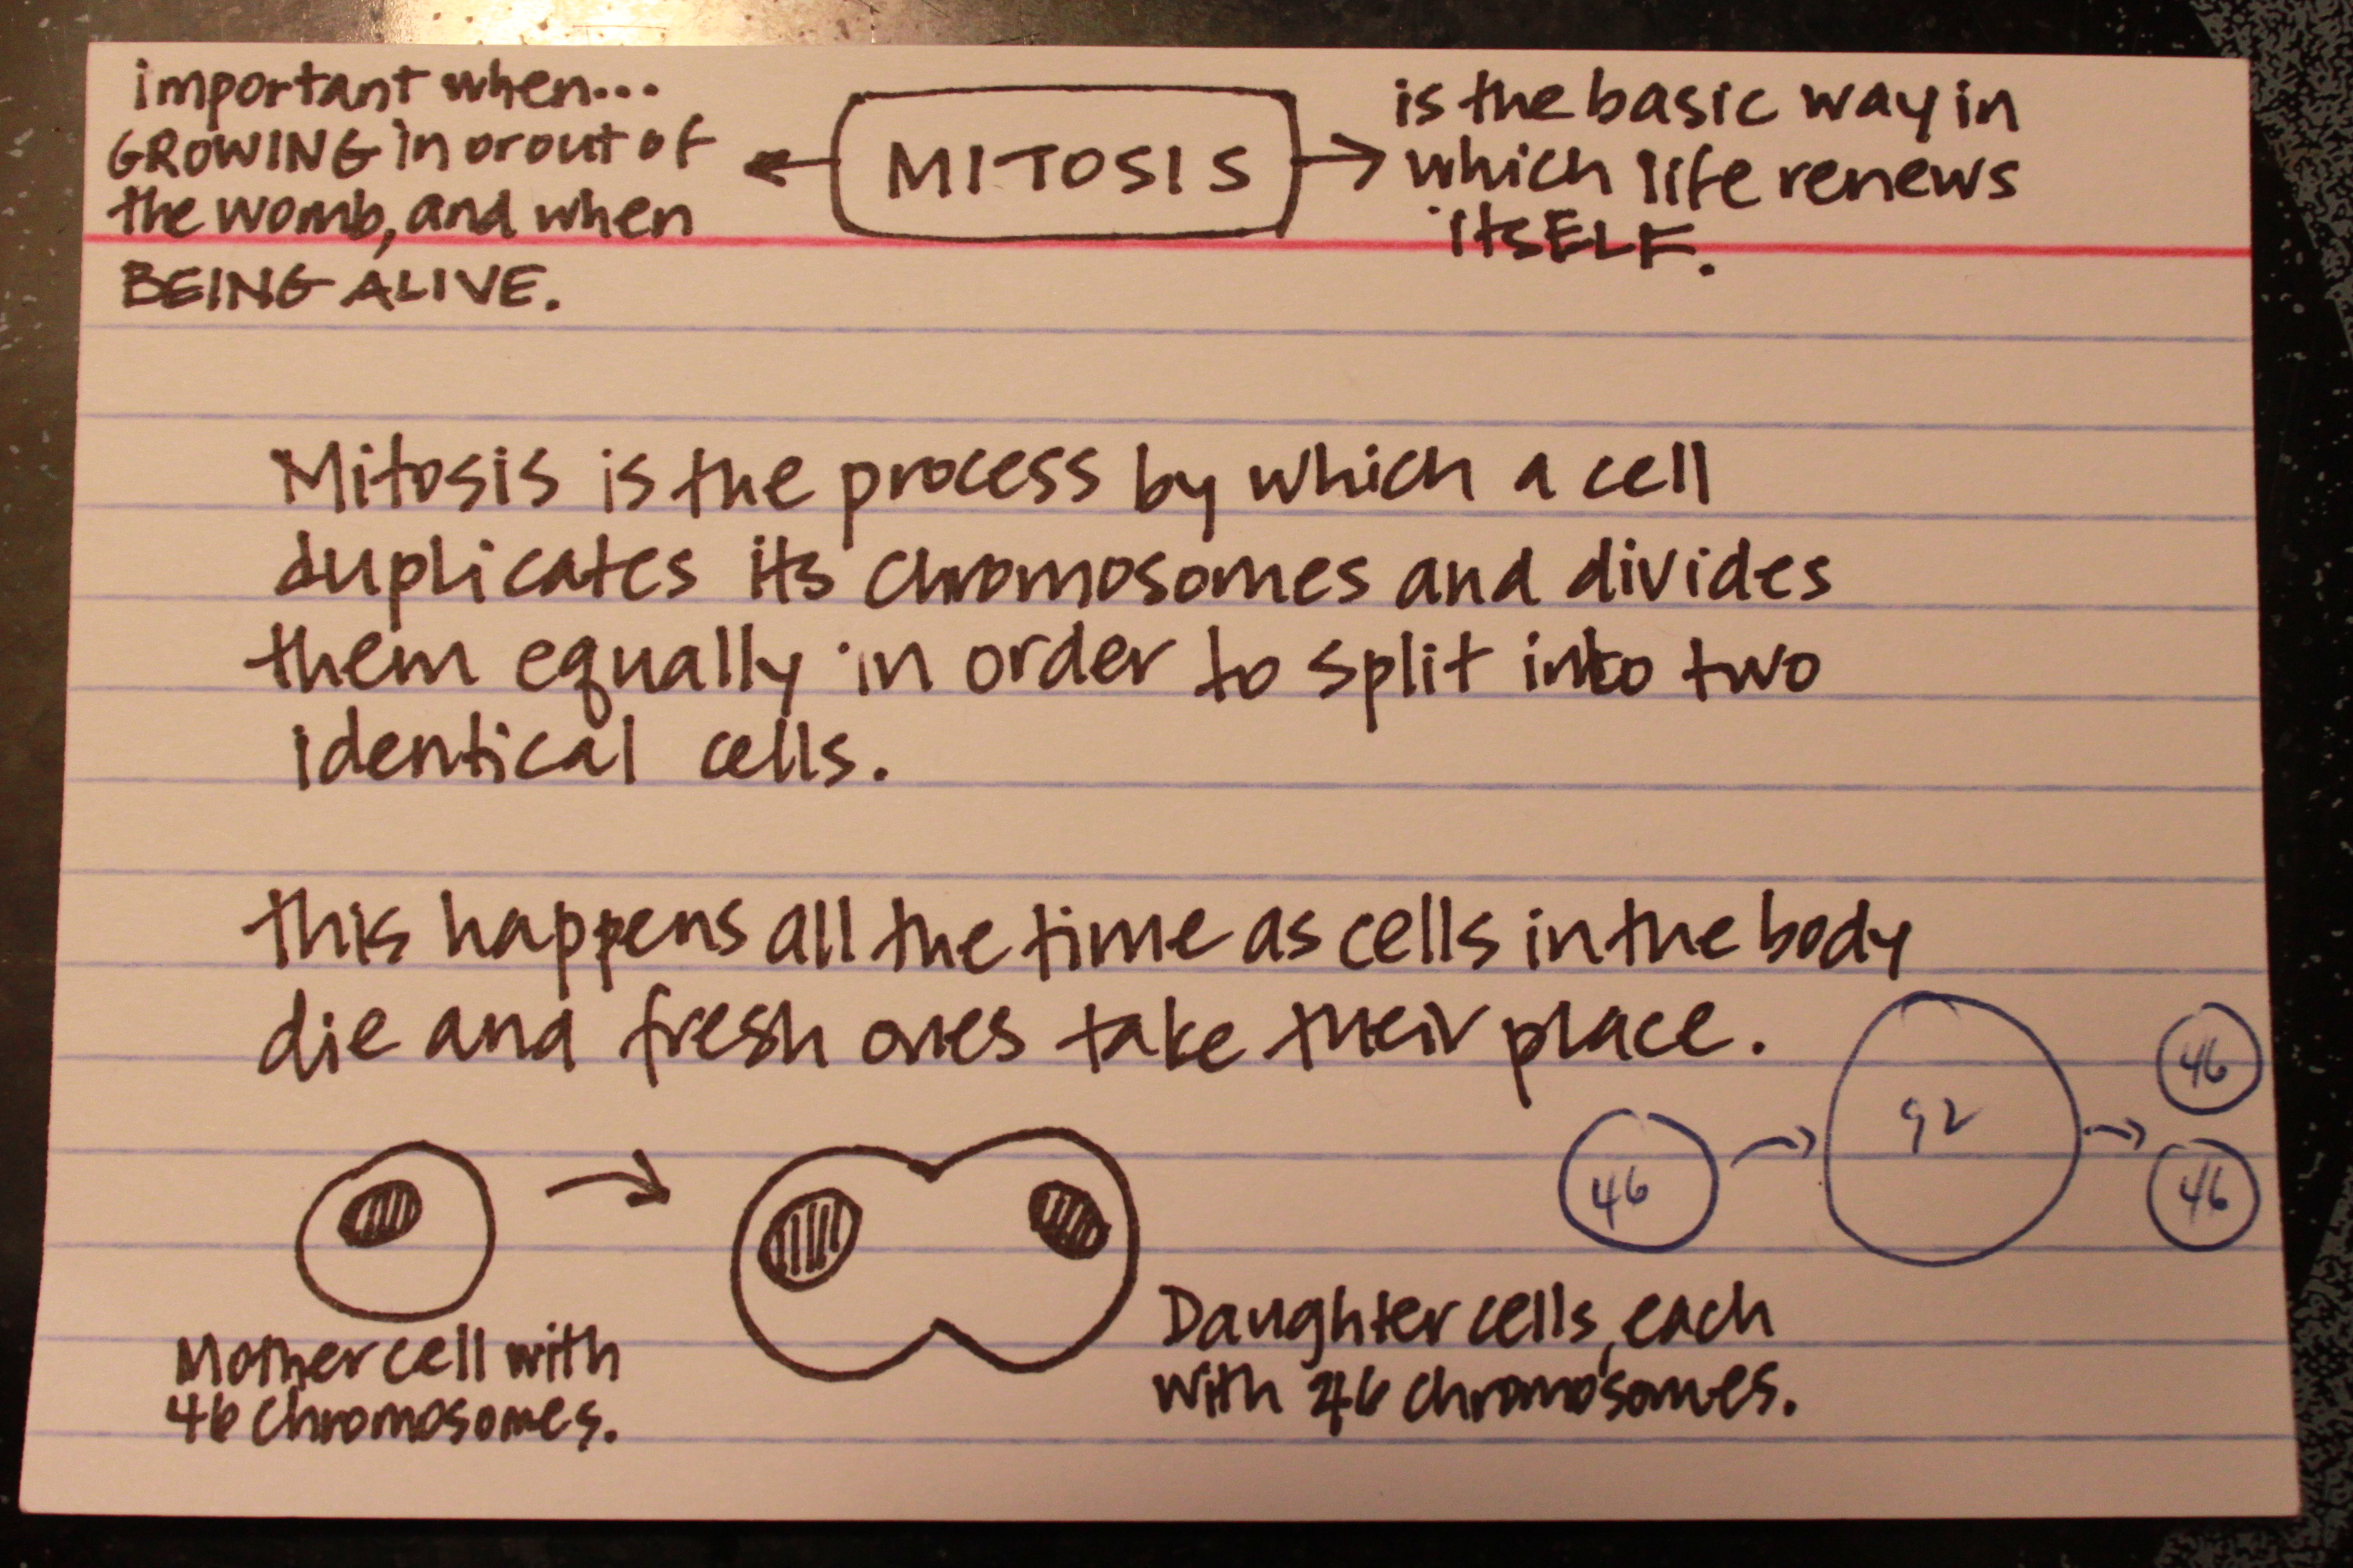 important when...
GROWING in or out of
the womb, and when
BEING ALIVE.
MITOSIS
is the basic way in
which life renews
itSELF.
Mitosis is the process by which a cell
duplicates its chromosomes and divides
them equally in order to split into two
identical cells.
this happens all the time as cells in the body
die and fresh ones take their place.
46
92
46
46
Mother cell with
46 chromosomes.
Daughter cells, each
with 46 chromosomes.